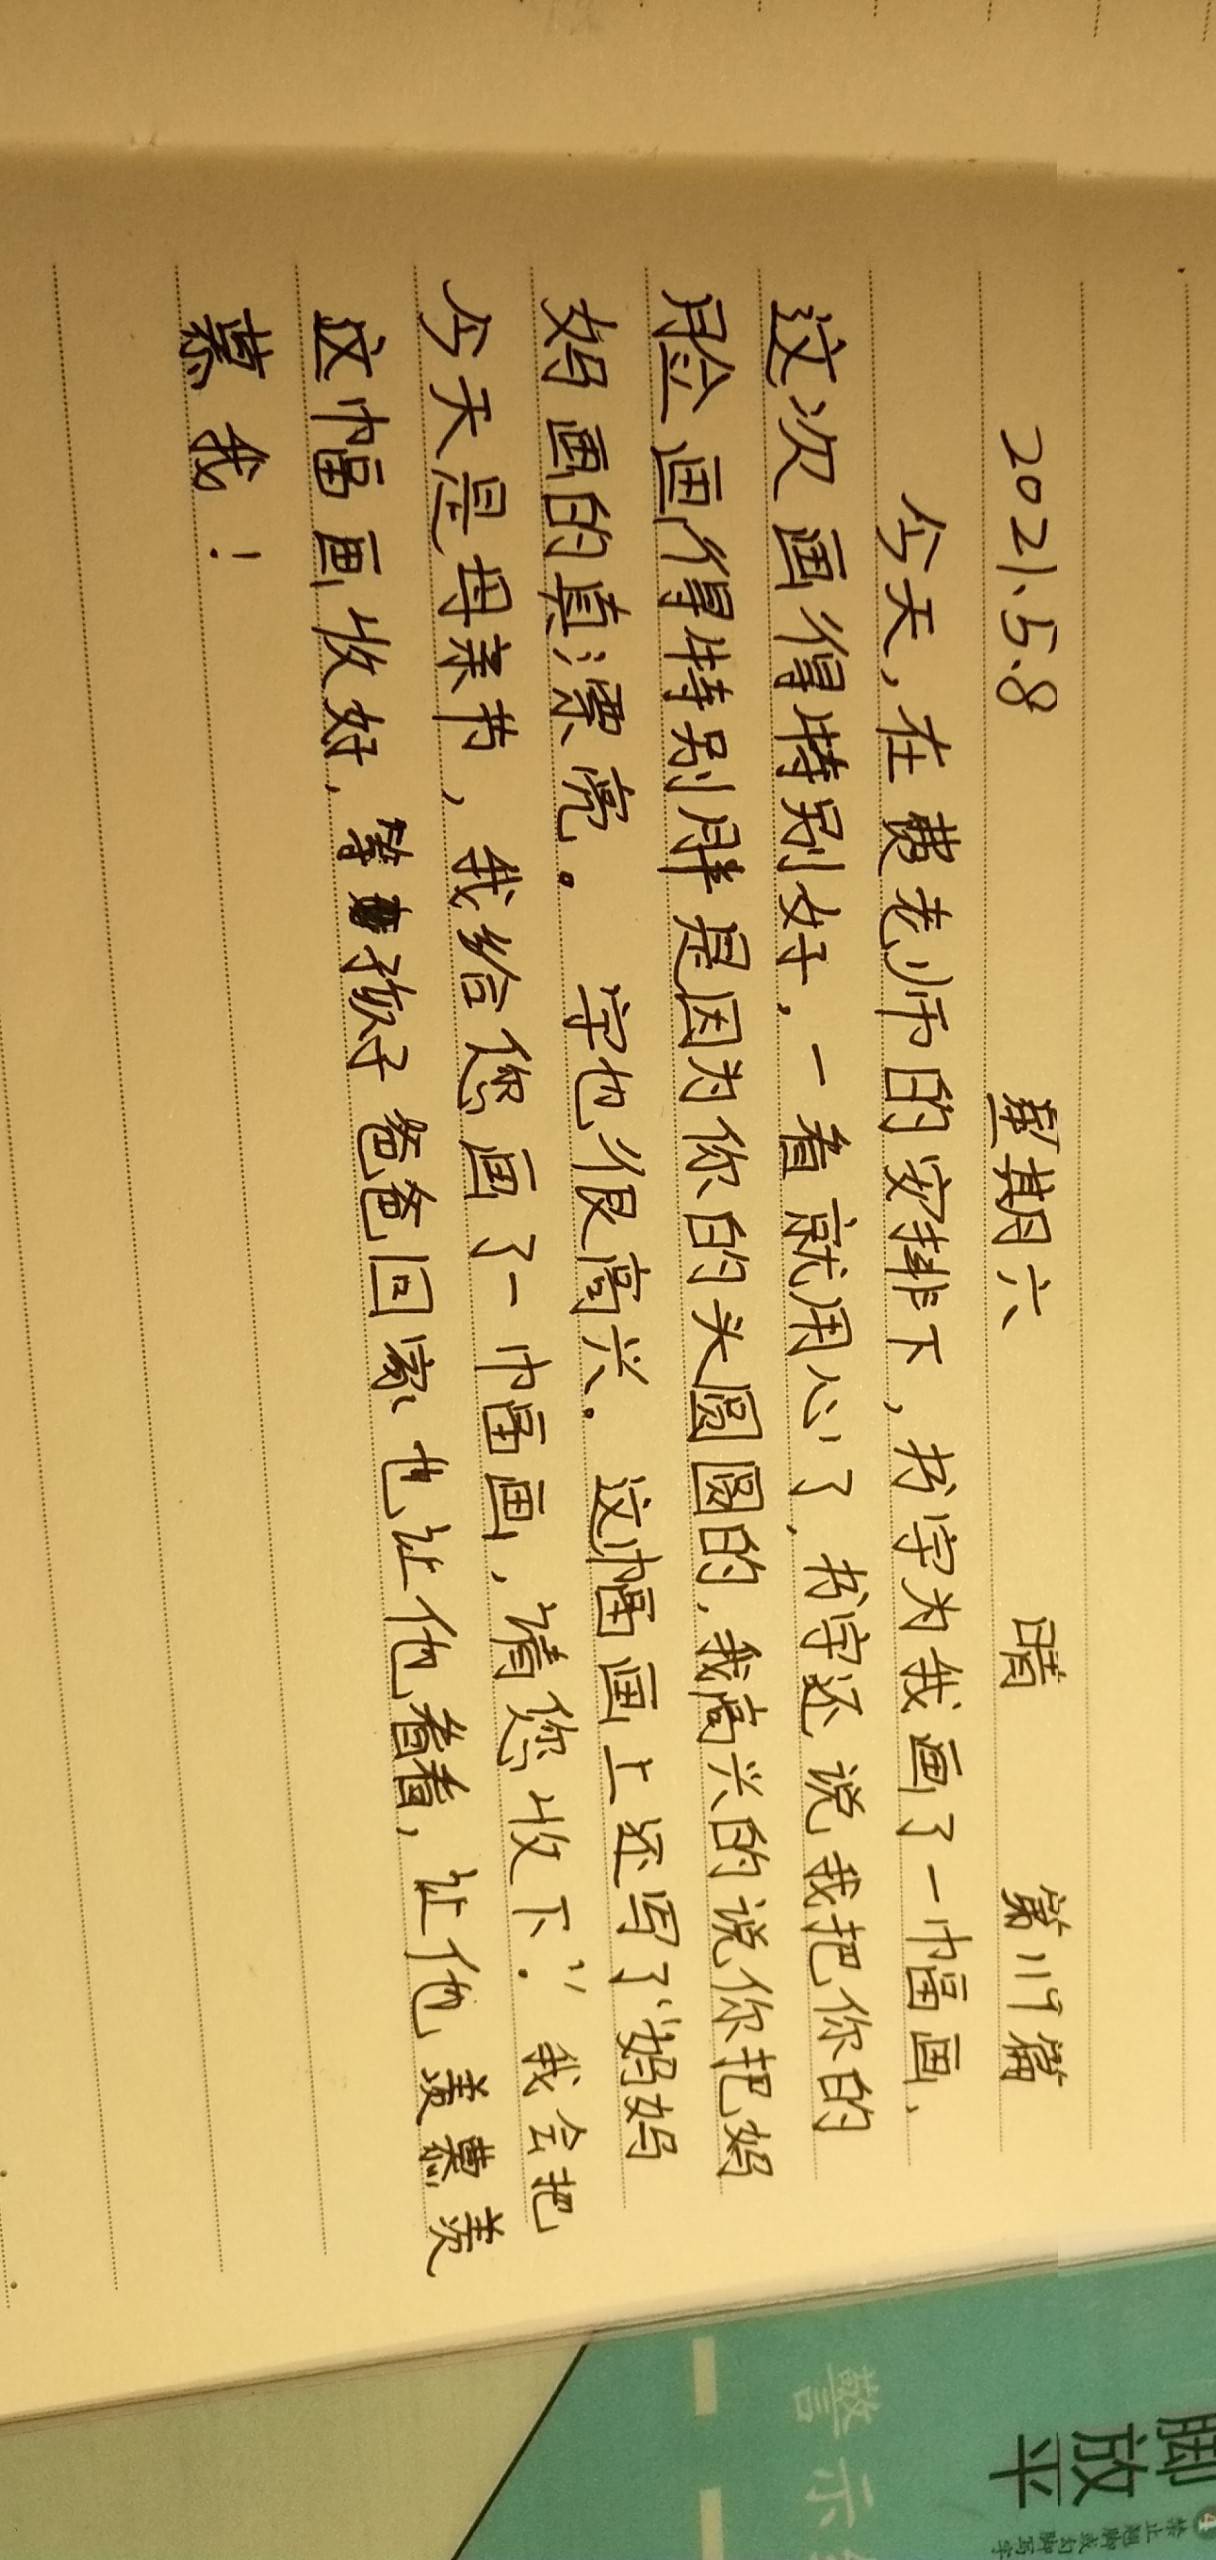 2021.5.8 星期六 晴 第119篇
今天，在费老师的安排下，书宇为我画了一幅画，
这次画得特别好，一看就用心了，书宇还说我把你的
脸画得特别胖是因为你的头圆圆的，我高兴的说你把妈
妈画的真漂亮。字也很高兴。这幅画上还写了“妈妈
今天是母亲节，我给您画了一幅画，请您收下.”我会把
这幅画收好，等孩子爸爸回家也让他看看，让他羡慕羡
慕我！
脚放平
警示
禁止翘脚或勾脚写字